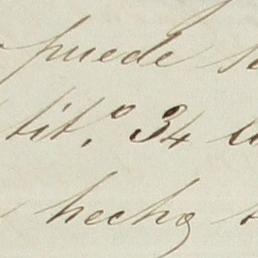 puede
tit.º 34
hecho